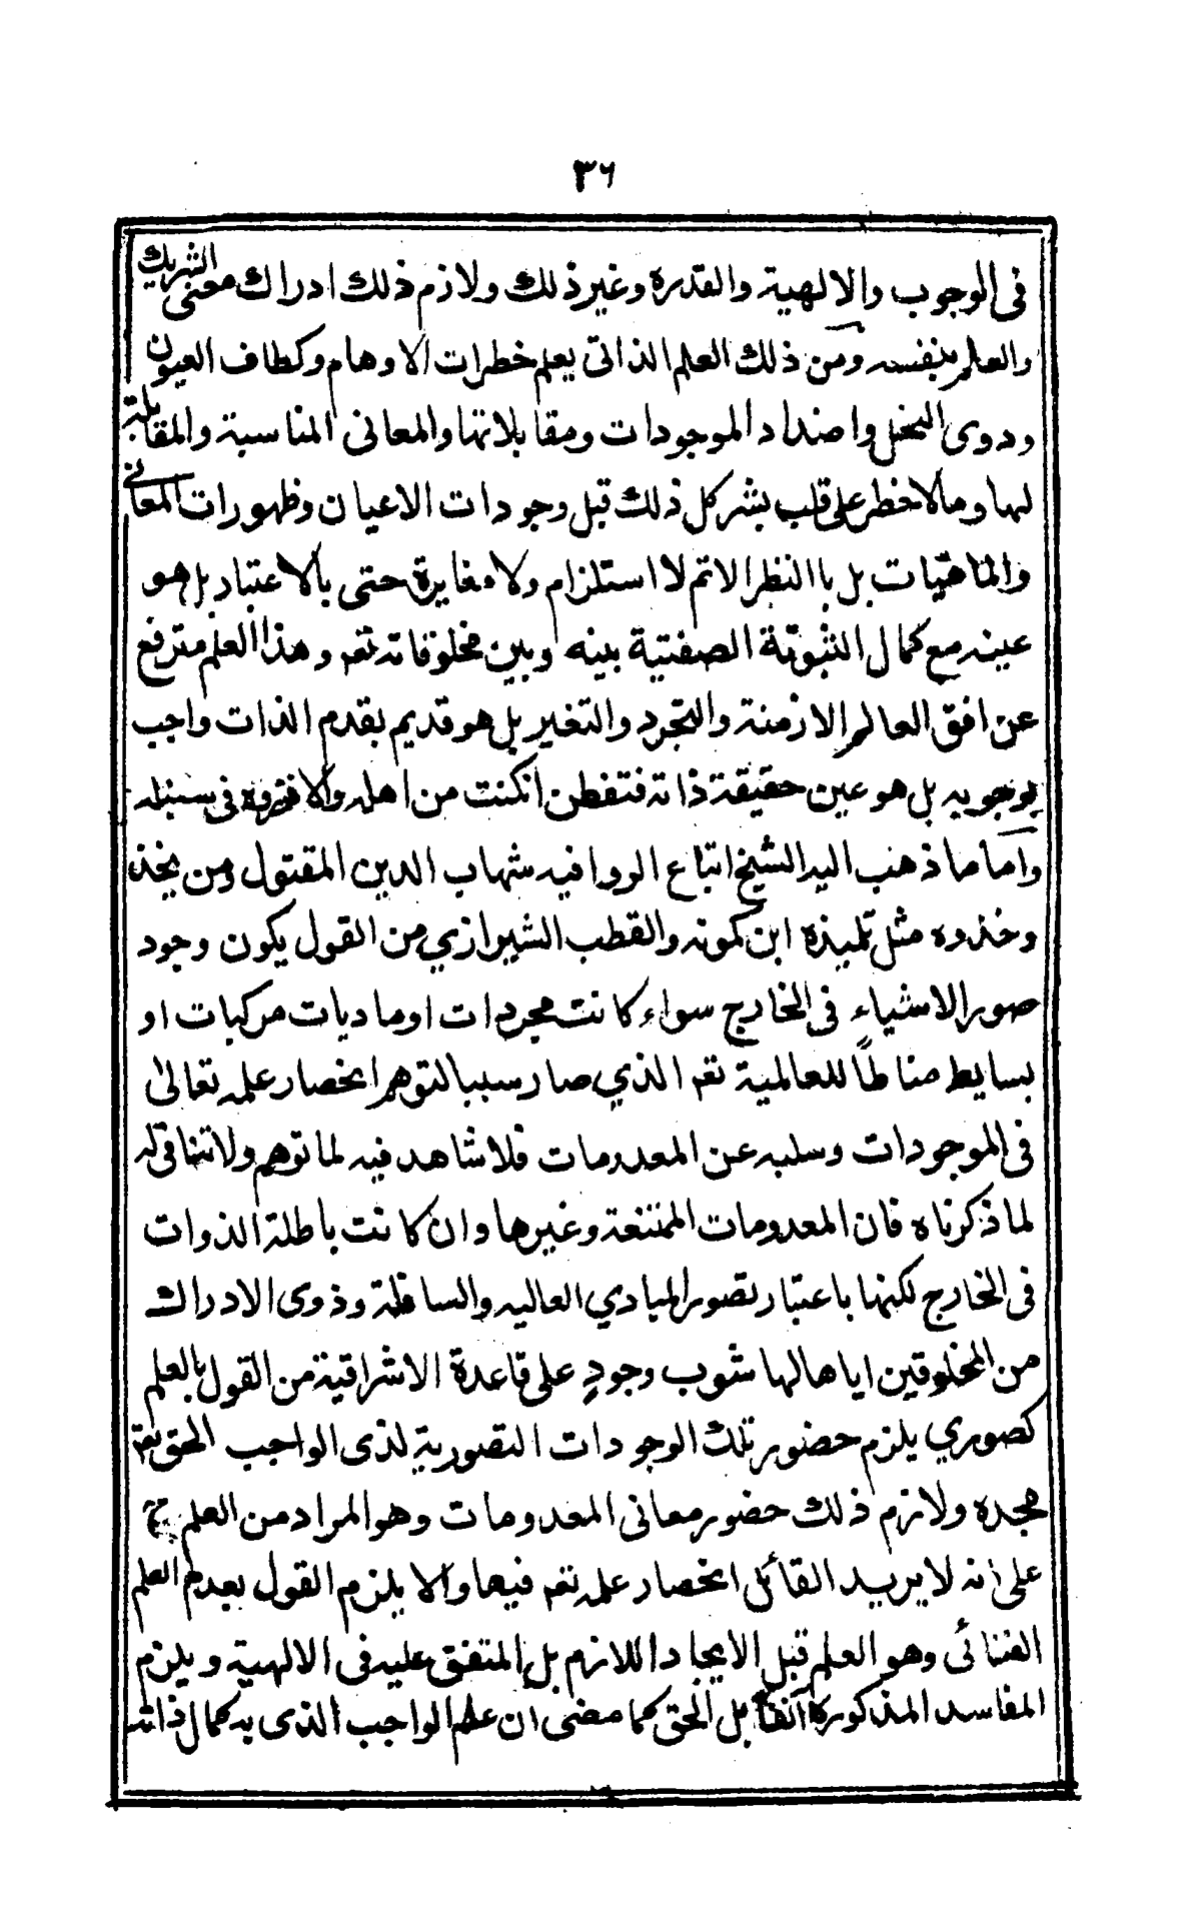 ٣٦
فى الوجوب والالهية والقدرة وغير ذلك ولازم ذلك ادراك معنى الشريك
والعلم بنفسه ومن ذلك العلم الذاتى يعلم خطرات الاوهام وكطاف العيون
ودوى النحل واضداد الموجودات ومقابلاتها والمعانى المناسبة والمقابلة
لها وما لا خطر على قلب بشر كل ذلك قبل وجودات الاعيان وظهورات المعانى
والماهيات بل با النظر الاتم لا استلزام ولا مغايرة حتى بالاعتبار بل هو
عينه مع كمال الصفتية بينه وبين مخلوقاته تعم وهذا العلم مترفع
عن افق العالم الازمنة والتجرد والتغير بل هو قديم بقدم الذات واجب
بوجوبه بل هو عين حقيقة ذاته فتفطن انكنت من اهله والا فذروه فى سنبله
واما ما ذهب اليه الشيخ اتباع الرواقيه شهاب الدين المقتول ومن يحذ
وحذوه مثل تلميذه ابن كمونه والقطب الشيرازي من القول بكون وجود
صور الاشياء فى الخارج سواء كانت مجردات او ماديات مركبات او
بسايط مناطاً للعالمية تعم الذي صار سببا لتوهم انحصار علمه تعالى
فى الموجودات وسلبه عن المعدومات فلا شاهد فيه لما توهم ولا تنافى له
لما ذكرناه فان المعدومات الممتنعة وغيرها وان كانت باطلة الذوات
فى الخارج لكنها باعتبار تصور المبادي العاليه والسافلة وذوى الادراك
من المخلوقين اياها لها شوب وجودٍ على قاعدة الاشراقية من القول بالعلم
كصوري يلزم حضور تلك الوجودات التصورية لذى الواجب الحق تعم
مجده ولازم ذلك حضور معانى المعدومات وهو المراد من العلم ح
على انه لا يريد القائل انحصار علمه تعم فيها والا يلزم القول بعدم العلم
وهو العلم قبل الايجاد اللازم بل المتفق عليه فى الالهية ويلزم
المفاسد المذكورة آنفاً بل الحق كما مضى ان علم الواجب الذى به كمال ذاته